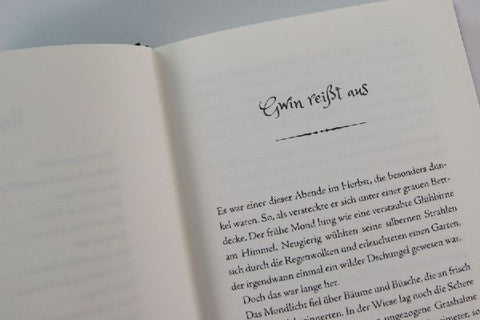 Gwin reißt aus
Es war einer dieser Abende im Herbst, die besonders dun-
kel waren. So, als versteckte er sich unter einer grauen Bett-
decke. Der frühe Mond hing wie eine verstaubte Glühbirne
am Himmel. Neugierig wühlten seine silbernen Strahlen
sich durch die Regenwolken und erleuchteten einen Garten,
der irgendwann einmal ein wilder Dschungel gewesen war.
Doch das war lange her.
Das Mondlicht fiel über Bäume und Büsche, die an frisch
erinnerten. In der Wiese lag noch die Schere
ungezogene Grashalme